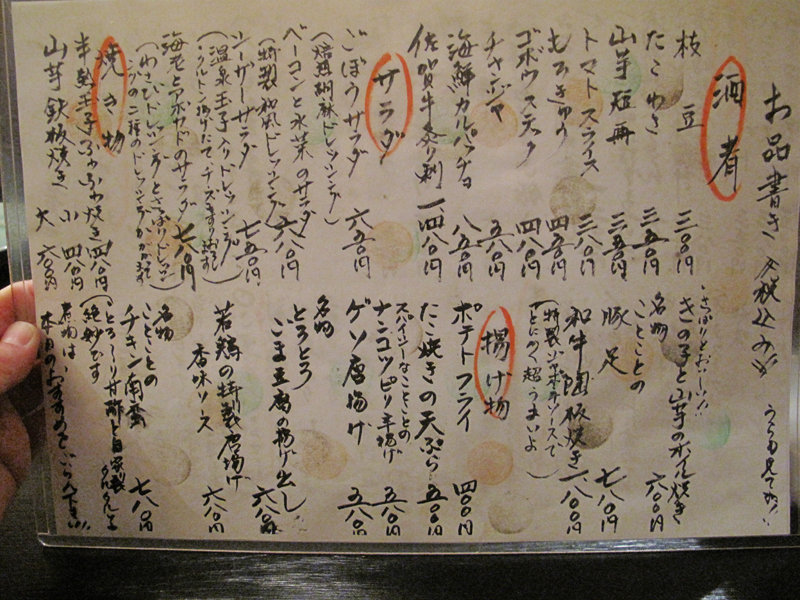 お品書き 税込み
うらも見てネ!!
酒肴
枝豆 三〇〇円
たこわさ 三五〇円
山芋短冊 三五〇円
トマトスライス 三八〇円
もろきゅう 四五〇円
ゴボウスティック 四八〇円
チャンジャ 五八〇円
海鮮カルパッチョ 八五〇円
佐賀牛炙り刺 一四八〇円
サラダ
ごぼうサラダ 六五〇円
(焙煎胡麻ドレッシング)
ベーコンと水菜のサラダ 六八〇円
(特製和風ドレッシング)
シーザーサラダ 七五〇円
(温泉玉子入りドレッシング)
海老とアボカドのサラダ 七八〇円
(わさびドレッシングと
二種のドレッシングがかかってます)
焼き物
半熟玉子ふわふわ焼き 四八〇円
山芋鉄板焼き 小 四八〇円
大 六八〇円
きの子と山芋のホイル焼き 六八〇円
名物
ことことの豚足 七八〇円
和牛陶板焼き 一、八〇円
とにかく超うまいよ)
揚げ物
ポテトフライ 四〇〇円
たこ焼きの天ぷら 五〇〇円
スパイシーなことことの
ナンコツピリ辛揚げ 五八〇円
ゲソ唐揚げ 五八〇円
名物
とろとろ
ごま豆腐の揚げ出し 六八〇円
若鶏の特製唐揚げ
香味ソース 六八〇円
名物
ことことの
チキン南蛮 七八〇円
(とろ〜り甘酢と自家製タルタル
絶妙です)
煮物は、
本日のおすすめをごらん下さい!!